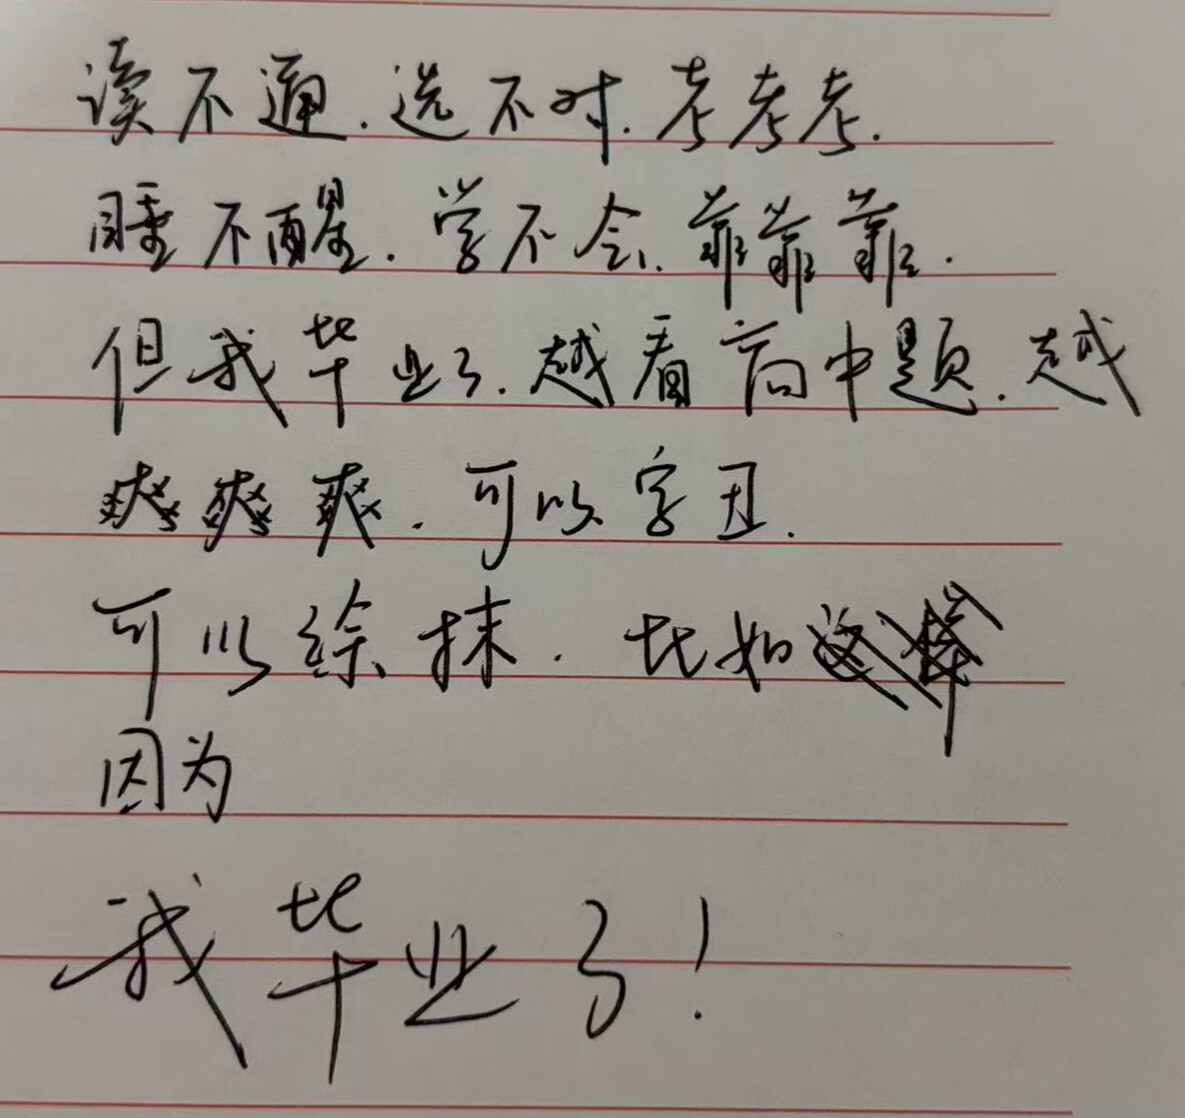 读不通.选不对.考考考.
睡不醒.学不会.靠靠靠.
但我毕业了.越看高中题.越
爽爽爽.可以字丑.
可以综抹.比如这样
因为
我毕业了!